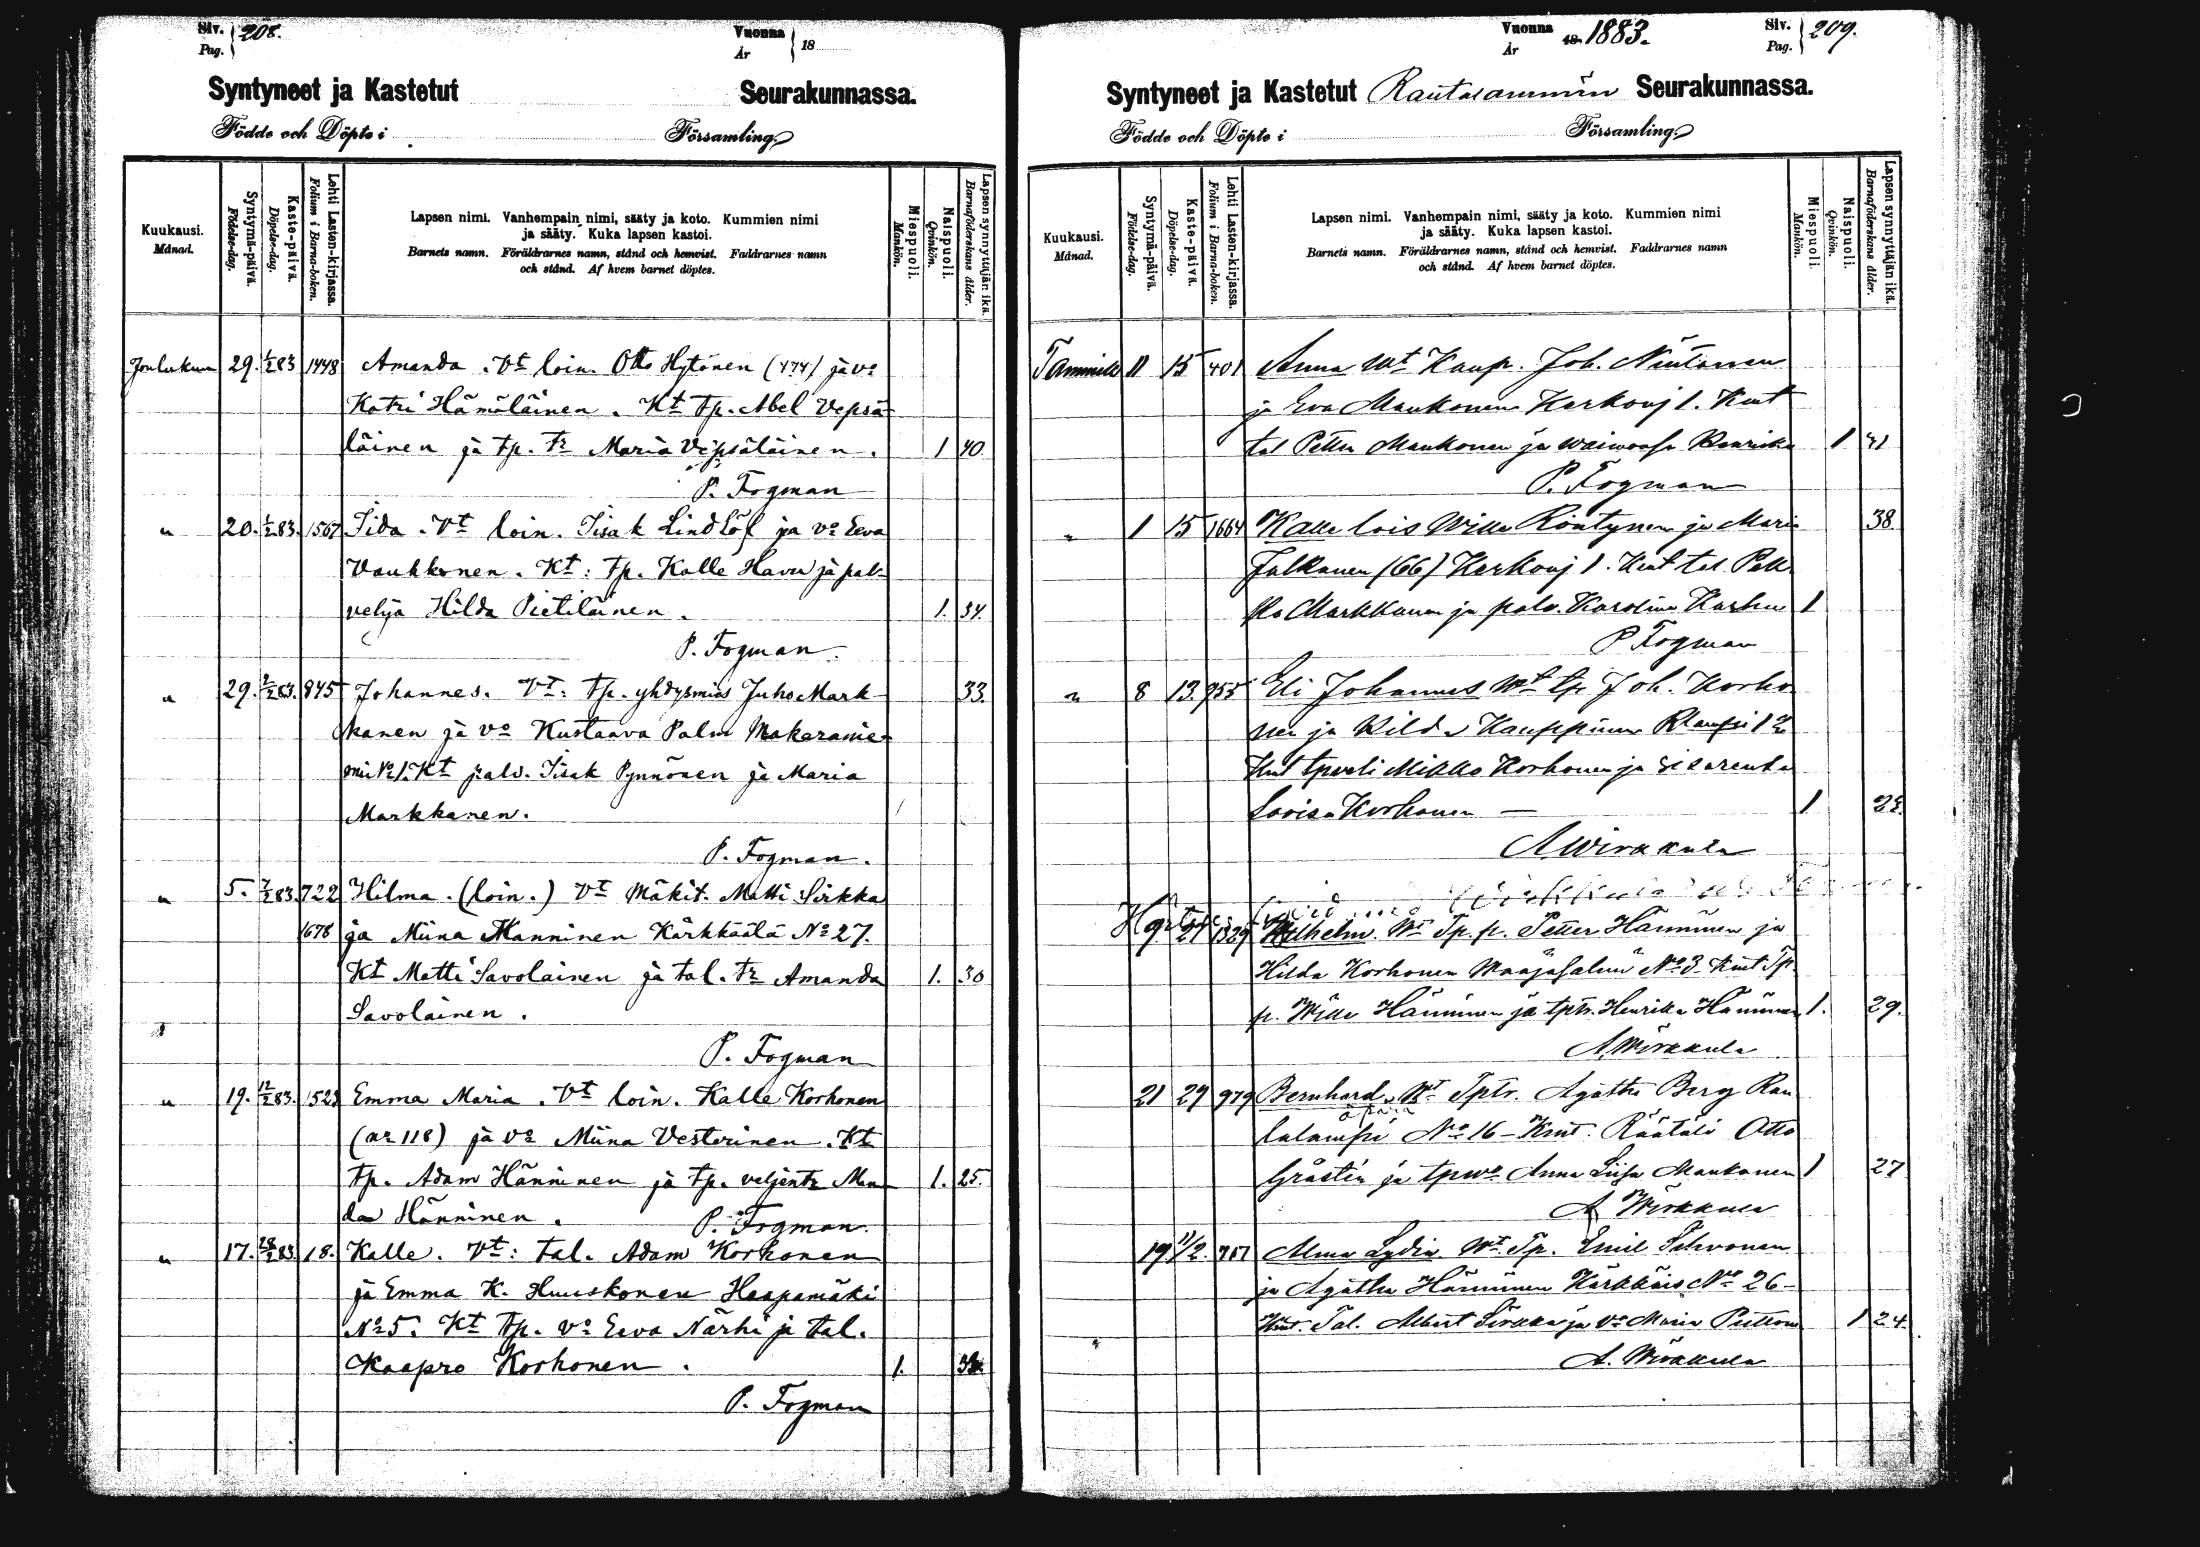 Siv. Pag. 208.
Vuonna År 18
Syntyneet ja Kastetut Seurakunnassa.
Födde och Döpte i Församling.
Kuukausi. Månad.
Syntymä-päivä. Födelse-dag.
Kaste-päivä. Döpelse-dag.
Lehti Lasten-kirjassa. Folium i Barna-boken.
Lapsen nimi. Vanhempain nimi, sääty ja koto. Kummien nimi
ja sääty. Kuka lapsen kastoi.
Barnets namn. Föräldrarnes namn, stånd och hemvist. Faddrarnes namn
och stånd. Af hvem barnet döptes.
Miespuoli. Mankön.
Naispuoli. Qvinkön.
Lapsen synnyttäjän ikä. Barnaföderskans ålder.
Joulukuu 29. 1/2 83 1448 Amanda. Vt loin. Otto Hytönen (474) ja vo
Katri Hämäläinen. Kt tp. Abel Vepsä-
läinen ja tp. tr Maria Vepsäläinen. 1 40
P. Fogman
" 20. 1/2 83. 1567 Iida. Vt loin. Iisak Lindlöf ja vo Eeva
Vauhkonen. Kt: tp. Kalle Havu ja pal-
velija Hilda Pietiläinen. 1. 34.
P. Fogman.
" 29. 2/2 83. 845 Johannes. Vt: tp. yhdysmies Juho Mark-
kanen ja vo Kustaava Palm Makaranie-
mi No 1. Kt palv. Iisak Pynnönen ja Maria 33.
Markkanen. 1
P. Fogman.
" 5. 7/2 83. 722 Hilma. (loin.) Vt Mäkit. Matti Sirkka
1678 ja Miina Manninen Kärkkäälä No 27.
Kt Matti Savolainen ja tal. tr Amanda 1. 30
Savolainen.
P. Fogman
" 19. 12/2 83. 1523 Emma Maria. Vt loin. Kalle Korhonen
(ar 118) ja vo Miina Vesterinen. Kt
tp. Adam Hänninen ja tp. veljentr Man- 1. 25.
da Hänninen. P. Fogman.
" 17. 28/2 83. 18. Kalle. Vt: tal. Adam Korhonen
ja Emma K. Huuskonen Haapamäki
No 5. Kt tp. vo Eeva Närhi ja tal.
Kaapro Korhonen. 1.
P. Fogman
Vuonna År 1883.
Siv. Pag. 209.
Syntyneet ja Kastetut Rautalammin Seurakunnassa.
Födde och Döpte i Församling.
Kuukausi. Månad.
Syntymä-päivä. Födelse-dag.
Kaste-päivä. Döpelse-dag.
Lehti Lasten-kirjassa. Folium i Barna-boken.
Lapsen nimi. Vanhempain nimi, sääty ja koto. Kummien nimi
ja sääty. Kuka lapsen kastoi.
Barnets namn. Föräldrarnes namn, stånd och hemvist. Faddrarnes namn
och stånd. Af hvem barnet döptes.
Miespuoli. Mankön.
Naispuoli. Qvinkön.
Lapsen synnyttäjän ikä. Barnaföderskans ålder.
Tammik 11 15 401 Anna Wt Kaup. Joh. Niutanen
ja Eva Maukonen Kerkonj 1. Kmt
tal Petter Maukonen ja waimonsa Henrika 1 41
P. Fogman
" 1 15 1664 Kalle lois Wille Röntynen ja Maria 38
Jalkanen (66) Kerkonj 1. Kmt tal.
Markkanen ja palv. Karolina Karhu 1
P Fogman
" 8 13. 955 Eli Johannes Wt tp Joh. Korho
nen ja Hilda Kauppinen
Kmt tpveli Mikko Korhonen ja sisarensa
Lovisa Korhonen — 1
A Wirkkula
9. 21 1329 Wilhelm. Wt Tp. p. Petter Hänninen ja
Hilda Korhonen Maajasalmi No 3 Kmt Tp.
p. Wille Hänninen ja tptr. Henrika Hänninen 1. 29.
A. Wirkkula
21 29 979 Bernhard. Wt Tptr. Agatha Berg Rau
äpärä
talampi No 16 - Kmt. Räätäli Otto
Gråstén ja tpwo Anna Liisa Maukonen 1 27
A Wirkkula
19 11/2. 717 Alma Lydia Wt Tp. Emil Tihvonen
ja Agatha Hänninen Kärkkäis No 26 -
Kmt. Tal. Albert Sirkka ja Vo Maria 1 24.
A. Wirkkula